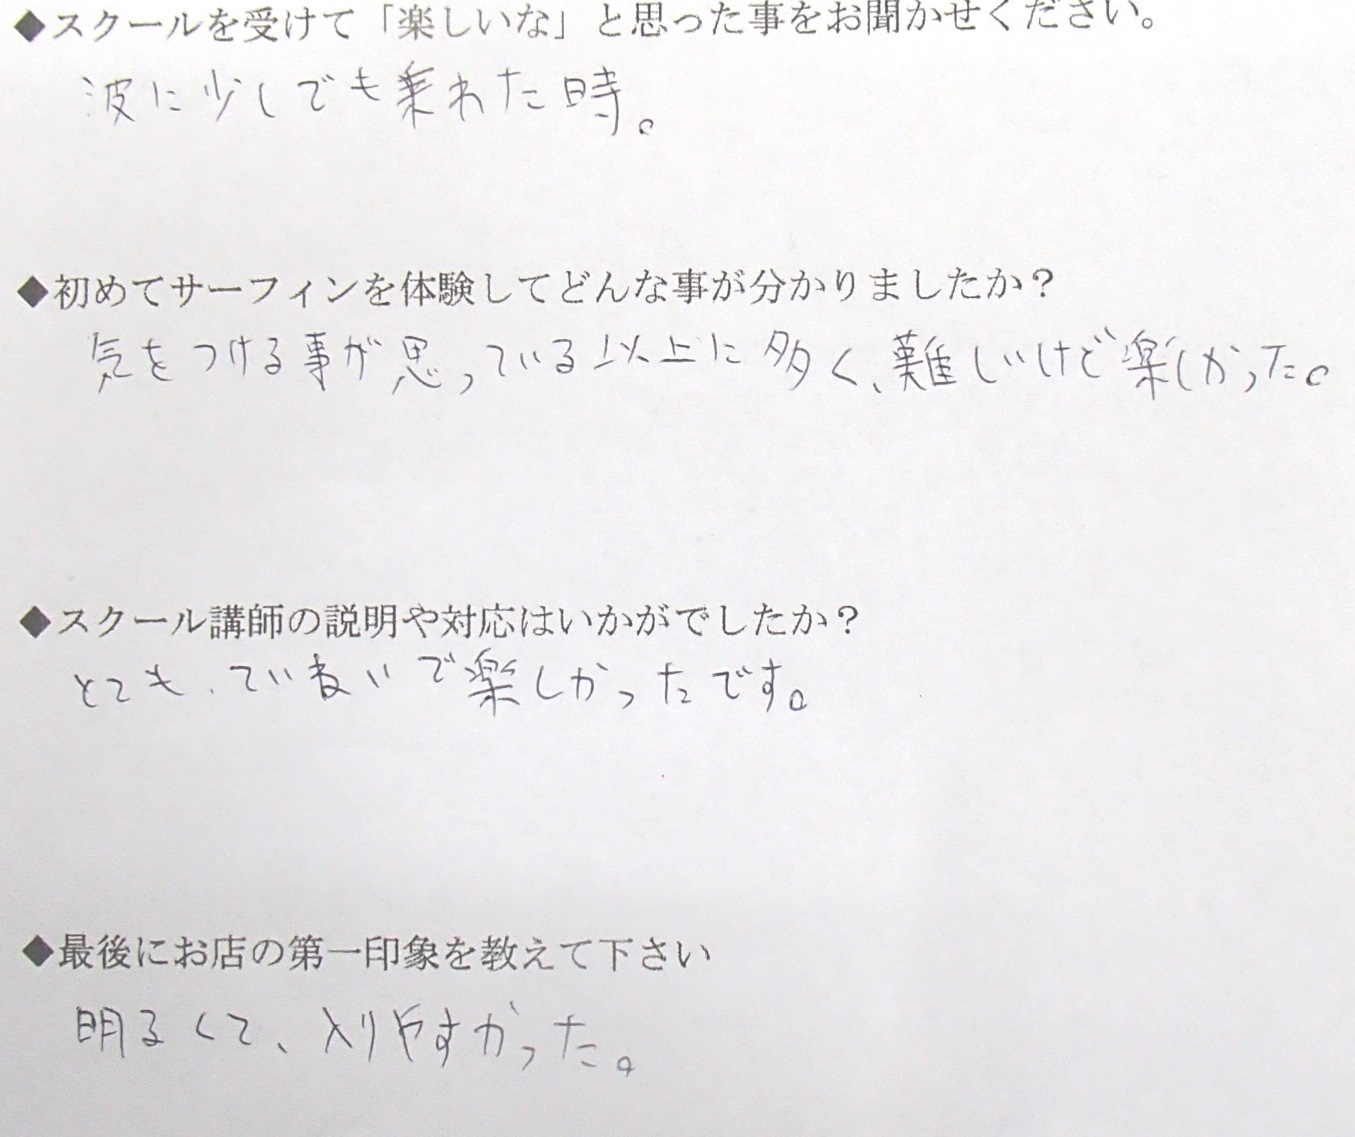 ◆スクールを受けて「楽しいな」と思った事をお聞かせください。
波に少しでも乗れた時。
◆初めてサーフィンを体験してどんな事が分かりましたか？
気をつける事が思っている以上に多く、難しいけど楽しかった。
◆スクール講師の説明や対応はいかがでしたか？
とても、ていねいで楽しかったです。
◆最後にお店の第一印象を教えて下さい
明るくて、入りやすかった。